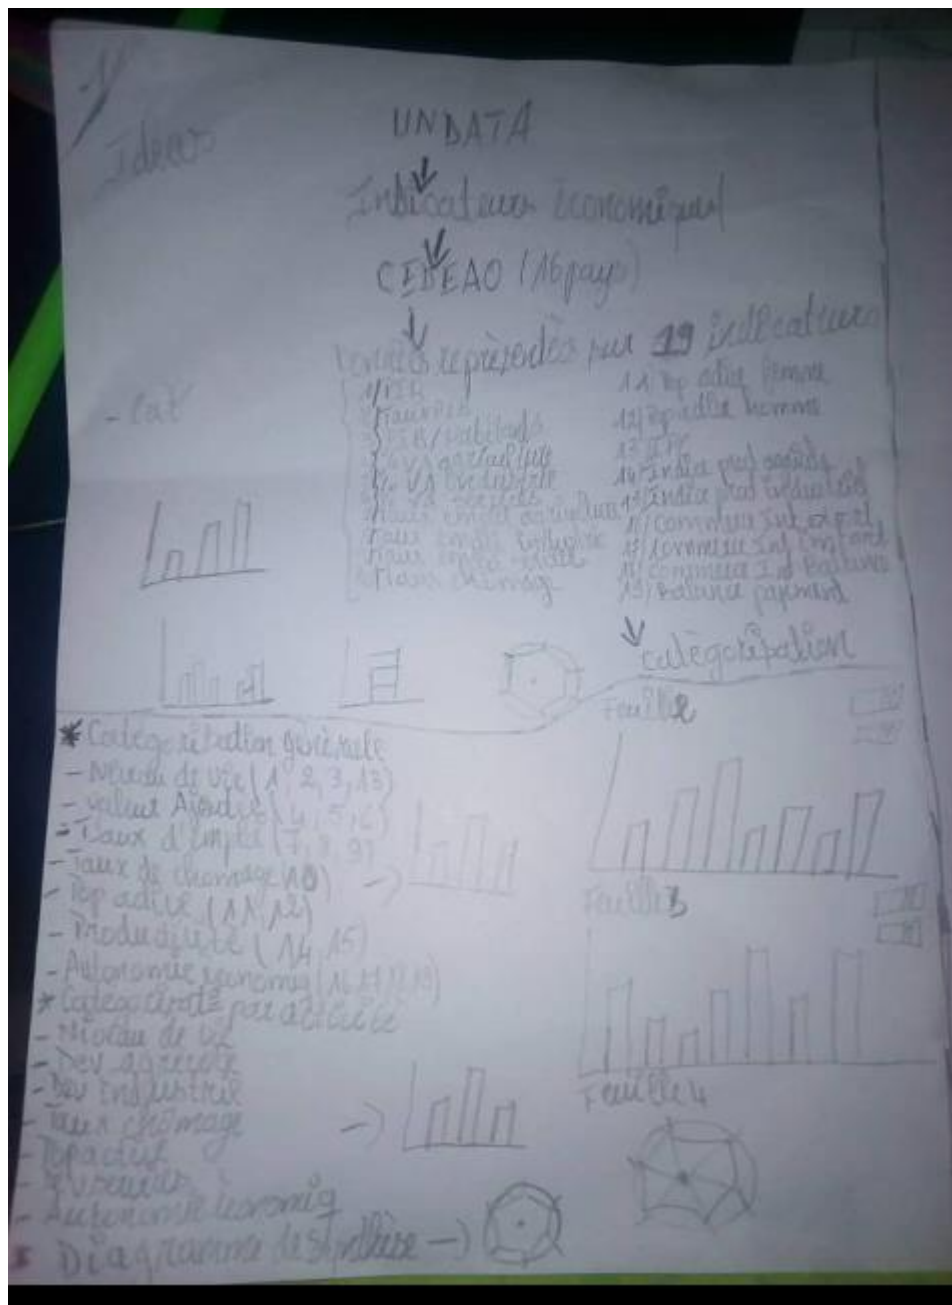 1
Idées
UNDATA
Indicateurs économiques
CEDEAO (16 pays)
Données représentées par 19 indicateurs
1/ PIB
2/ Taux PIB
3/ PIB/habitants
4/ VA agriculture
5/ VA industrie
6/ VA services
7/ Taux emploi agriculture
8/ Taux emploi industrie
9/ Taux emploi
10/ Taux chômage
11/ Pop active femme
12/ Pop active homme
13/ IPC
14/ Indice prod agricole
15/ Indice prod industriel
16/ Commerce Int export
17/ Commerce Int import
18/ Commerce Int Balance
19/ Balance payement
catégorisation
* Catégorisation générale
- Niveau de vie (1, 2, 3, 13)
- valeur Ajoutée (4, 5, 6)
- Taux d'emploi (7, 8, 9)
- Taux de chomage (10)
- Pop active (11, 12)
- Productivité (14, 15)
- Autonomie économiq (16, 17, 18, 19)
* Catégorisat° par activité
- Niveau de vie
- Dev agricole
- Dev industriel
- Taux chômage
- Pop active
- Autonomie économiq
* Diagramme de synthèse
Feuille 2
Feuille 3
Feuille 4